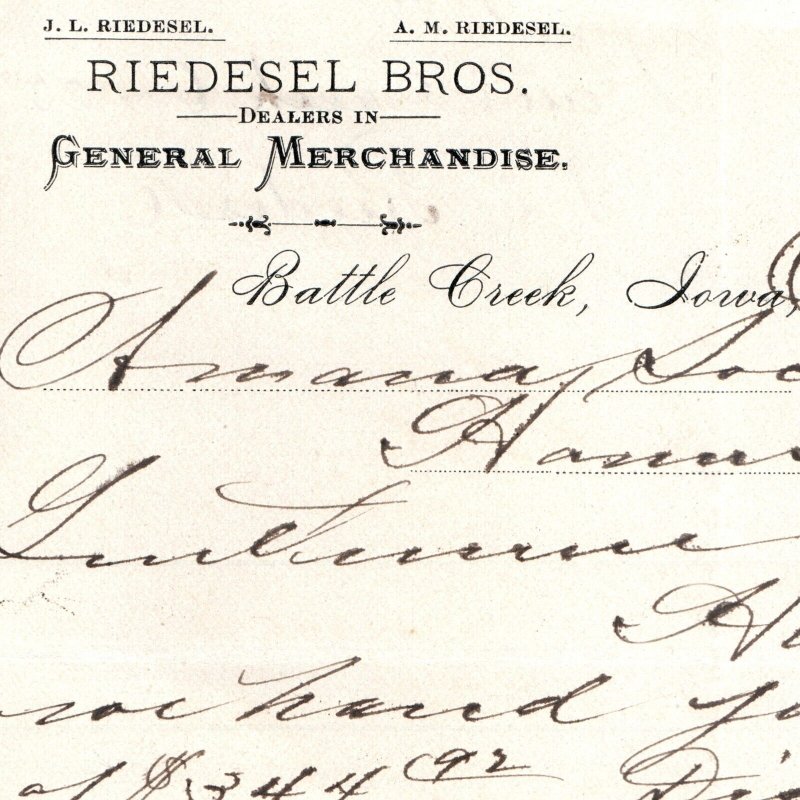 J. L. RIEDESEL. A. M. RIEDESEL.
RIEDESEL BROS.
DEALERS IN
GENERAL MERCHANDISE.
Battle Creek, Iowa,
Amana, Soc
Gentlemen
hand yo
of $344 92